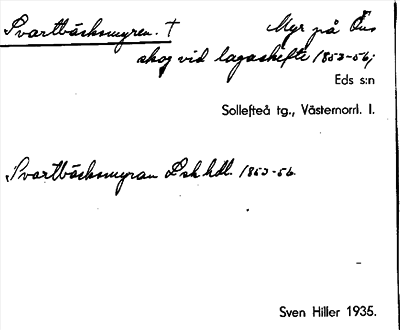 Svartbäcksmyren. † Myr på Öns
skog vid lagaskifte 1853-56;
Eds s:n
Sollefteå tg., Västernorrl. l.
Svartbäcksmyran Lsk hdl. 1853-56.
Sven Hiller 1935.